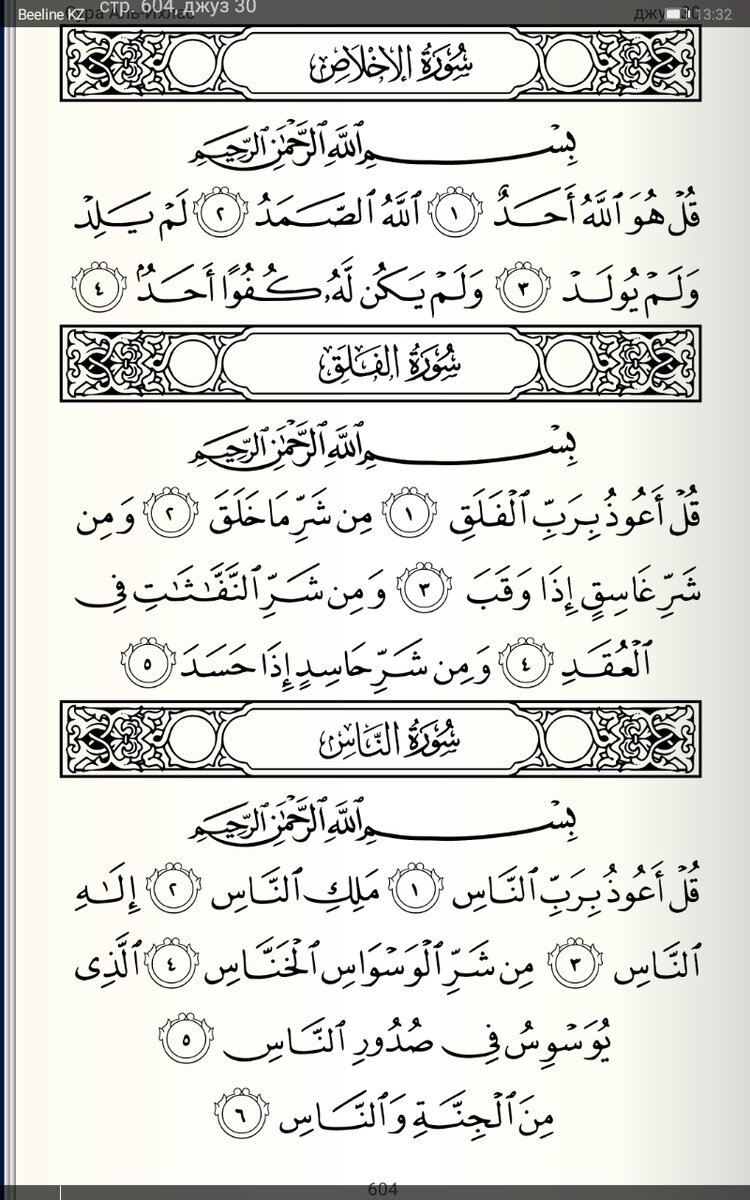 Beeline KZ стр. 604, джуз 30 13:32
سُورَةُ الإِخْلَاصِ
بِسْمِ ٱللَّهِ ٱلرَّحْمَٰنِ ٱلرَّحِيمِ
قُلْ هُوَ ٱللَّهُ أَحَدٌ ١ ٱللَّهُ ٱلصَّمَدُ ٢ لَمْ يَلِدْ
وَلَمْ يُولَدْ ٣ وَلَمْ يَكُن لَّهُۥ كُفُوًا أَحَدٌۢ ٤
سُورَةُ الفَلَقِ
بِسْمِ ٱللَّهِ ٱلرَّحْمَٰنِ ٱلرَّحِيمِ
قُلْ أَعُوذُ بِرَبِّ ٱلْفَلَقِ ١ مِن شَرِّ مَا خَلَقَ ٢ وَمِن
شَرِّ غَاسِقٍ إِذَا وَقَبَ ٣ وَمِن شَرِّ ٱلنَّفَّٰثَٰتِ فِى
ٱلْعُقَدِ ٤ وَمِن شَرِّ حَاسِدٍ إِذَا حَسَدَ ٥
سُورَةُ النَّاسِ
بِسْمِ ٱللَّهِ ٱلرَّحْمَٰنِ ٱلرَّحِيمِ
قُلْ أَعُوذُ بِرَبِّ ٱلنَّاسِ ١ مَلِكِ ٱلنَّاسِ ٢ إِلَٰهِ
ٱلنَّاسِ ٣ مِن شَرِّ ٱلْوَسْوَاسِ ٱلْخَنَّاسِ ٤ ٱلَّذِى
يُوَسْوِسُ فِى صُدُورِ ٱلنَّاسِ ٥
مِنَ ٱلْجِنَّةِ وَٱلنَّاسِ ٦
604